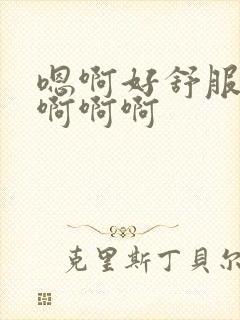 嗯啊好舒服
啊啊啊
克里斯丁贝尔